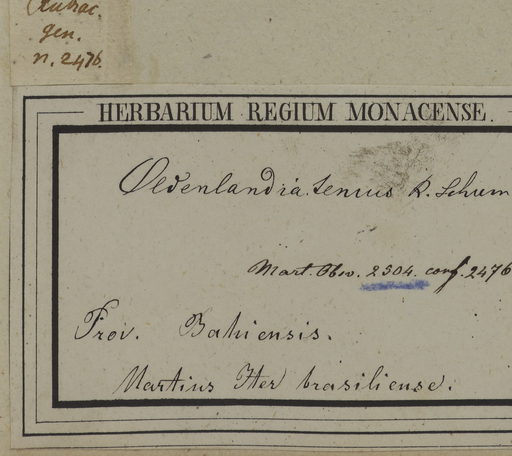 gen.
n. 2476.
HERBARIUM REGIUM MONACENSE.
Oldenlandia tenuis K. Schum
Mart. Obs. 2304. conf. 2476
Prov. Bahiensis.
Martius Iter brasiliense.